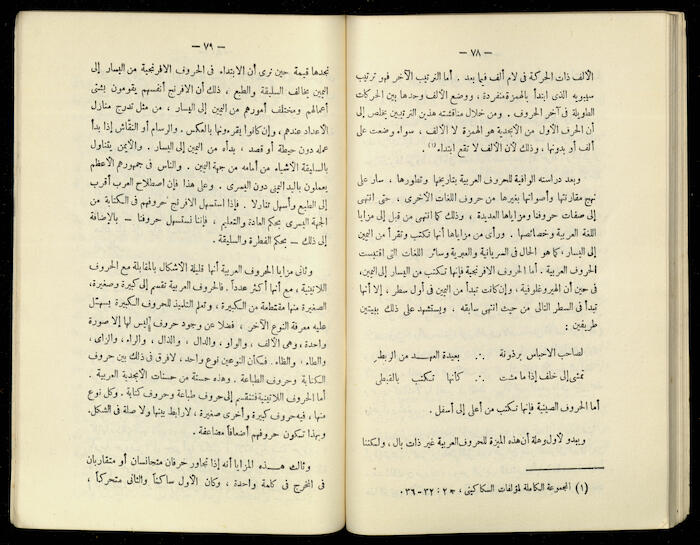 — ٧٨ —
الألف ذات الحركة في لام ألف فيما بعد . أما الترتيب الآخر فهو ترتيب
سيبويه الذي ابتدأ بالهمزة منفردة ، ووضع الألف وحدها بين الحركات
الطويلة في آخر الحروف . ومن خلال مناقشته هذين الترتيبين يخلص إلى
أن الحرف الأول من الأبجدية هو الهمزة لا الألف ، سواء وضعت على
ألف أو بدونها ، وذلك لأن الألف لا تقع ابتداء (١) .
وبعد دراسته الوافية للحروف العربية بتاريخها وتطورها ، سار على
نهج مقارنتها وأصواتها بغيرها من حروف اللغات الأخرى ، حتى انتهى
إلى صفات حروفنا ومزاياها العديدة ، وذلك كما انتهى من قبل إلى مزايا
اللغة العربية وخصائصها . ورأى من مزاياها أنها تكتب وتقرأ من اليمين
إلى اليسار ، كما هو الحال في السريانية والعبرية وسائر اللغات التي اقتبست
الحروف العربية . أما الحروف الافرنجية فإنها تكتب من اليسار إلى اليمين،
في حين أن الهيروغلوفية ، وإن كانت تبدأ من اليمين في أول سطر ، إلا أنها
تبدأ في السطر التالي من حيث انتهى سابقه ، ويستشهد على ذلك ببيتين
طريفين :
لصاحب الأحباس برذونة ∴ بعيدة العهد من الربط
تمشي إلى خلف إذا ما مشت ∴ كأنها تكتب بالقبطي
أما الحروف الصينية فإنها تكتب من أعلى إلى أسفل .
ويبدو لأول وهلة أن هذه الميزة للحروف العربية غير ذات بال ، ولكننا
(١) المجموعة الكاملة لمؤلفات السكاكيني ، ح٢ : ٣٢-٣٦ .
— ٧٩ —
نجدها قيمة حين نرى أن الابتداء في الحروف الافرنجية من اليسار إلى
اليمين يخالف السليقة والطبع ، ذلك أن الافرنج أنفسهم يقومون بشتى
أعمالهم ومختلف أمورهم من اليمين إلى اليسار ، من مثل تدرج منازل
الأعداد عندهم ، وإن كانوا يقرءونها بالعكس . والرسام أو النقّاش إذا بدأ
عمله دون حيطة أو قصد ، بدأه من اليمين إلى اليسار . والأيمن يتناول
بالسليقة الأشياء من أمامه من جهة اليمين . والناس في جمهورهم الأعظم
يعملون باليد اليمنى دون اليسرى . وعلى هذا فإن اصطلاح العرب أقرب
إلى الطبع وأسهل تناولا . فإذا استسهل الافرنج حروفهم في الكتابة من
الجهة اليسرى بحكم العادة والتعليم ، فإننا نستسهل حروفنا — بالإضافة
إلى ذلك — بحكم الفطرة والسليقة .
وثاني مزايا الحروف العربية أنها قليلة الأشكال بالمقابلة مع الحروف
اللاتينية ، مع أنها أكثر عدداً . فالحروف العربية تقسم إلى كبيرة وصغيرة،
الصغيرة منها مقتطعة من الكبيرة ، وتعلم التلميذ للحروف الكبيرة يسهّل
عليه معرفة النوع الآخر ، فضلا عن وجود حروف ليس لها إلا صورة
واحدة ، وهي الألف ، والواو ، والدال ، والذال ، والراء ، والزاي ،
والطاء ، والظاء . فكأن النوعين نوع واحد ، لا فرق في ذلك بين حروف
الكتابة وحروف الطباعة . وهذه حسنة من حسنات الأبجدية العربية .
أما الحروف اللاتينية فتنقسم إلى حروف طباعة وحروف كتابة . وكل نوع
منها ، فيه حروف كبيرة وأخرى صغيرة ، لا رابط بينها ولا صلة في الشكل.
وبهذا تكون حروفهم أضعافاً مضاعفة .
وثالث هذه المزايا أنه إذا تجاور حرفان متجانسان أو متقاربان
في المخرج في كلمة واحدة ، وكان الأول ساكناً والثاني متحركاً ،